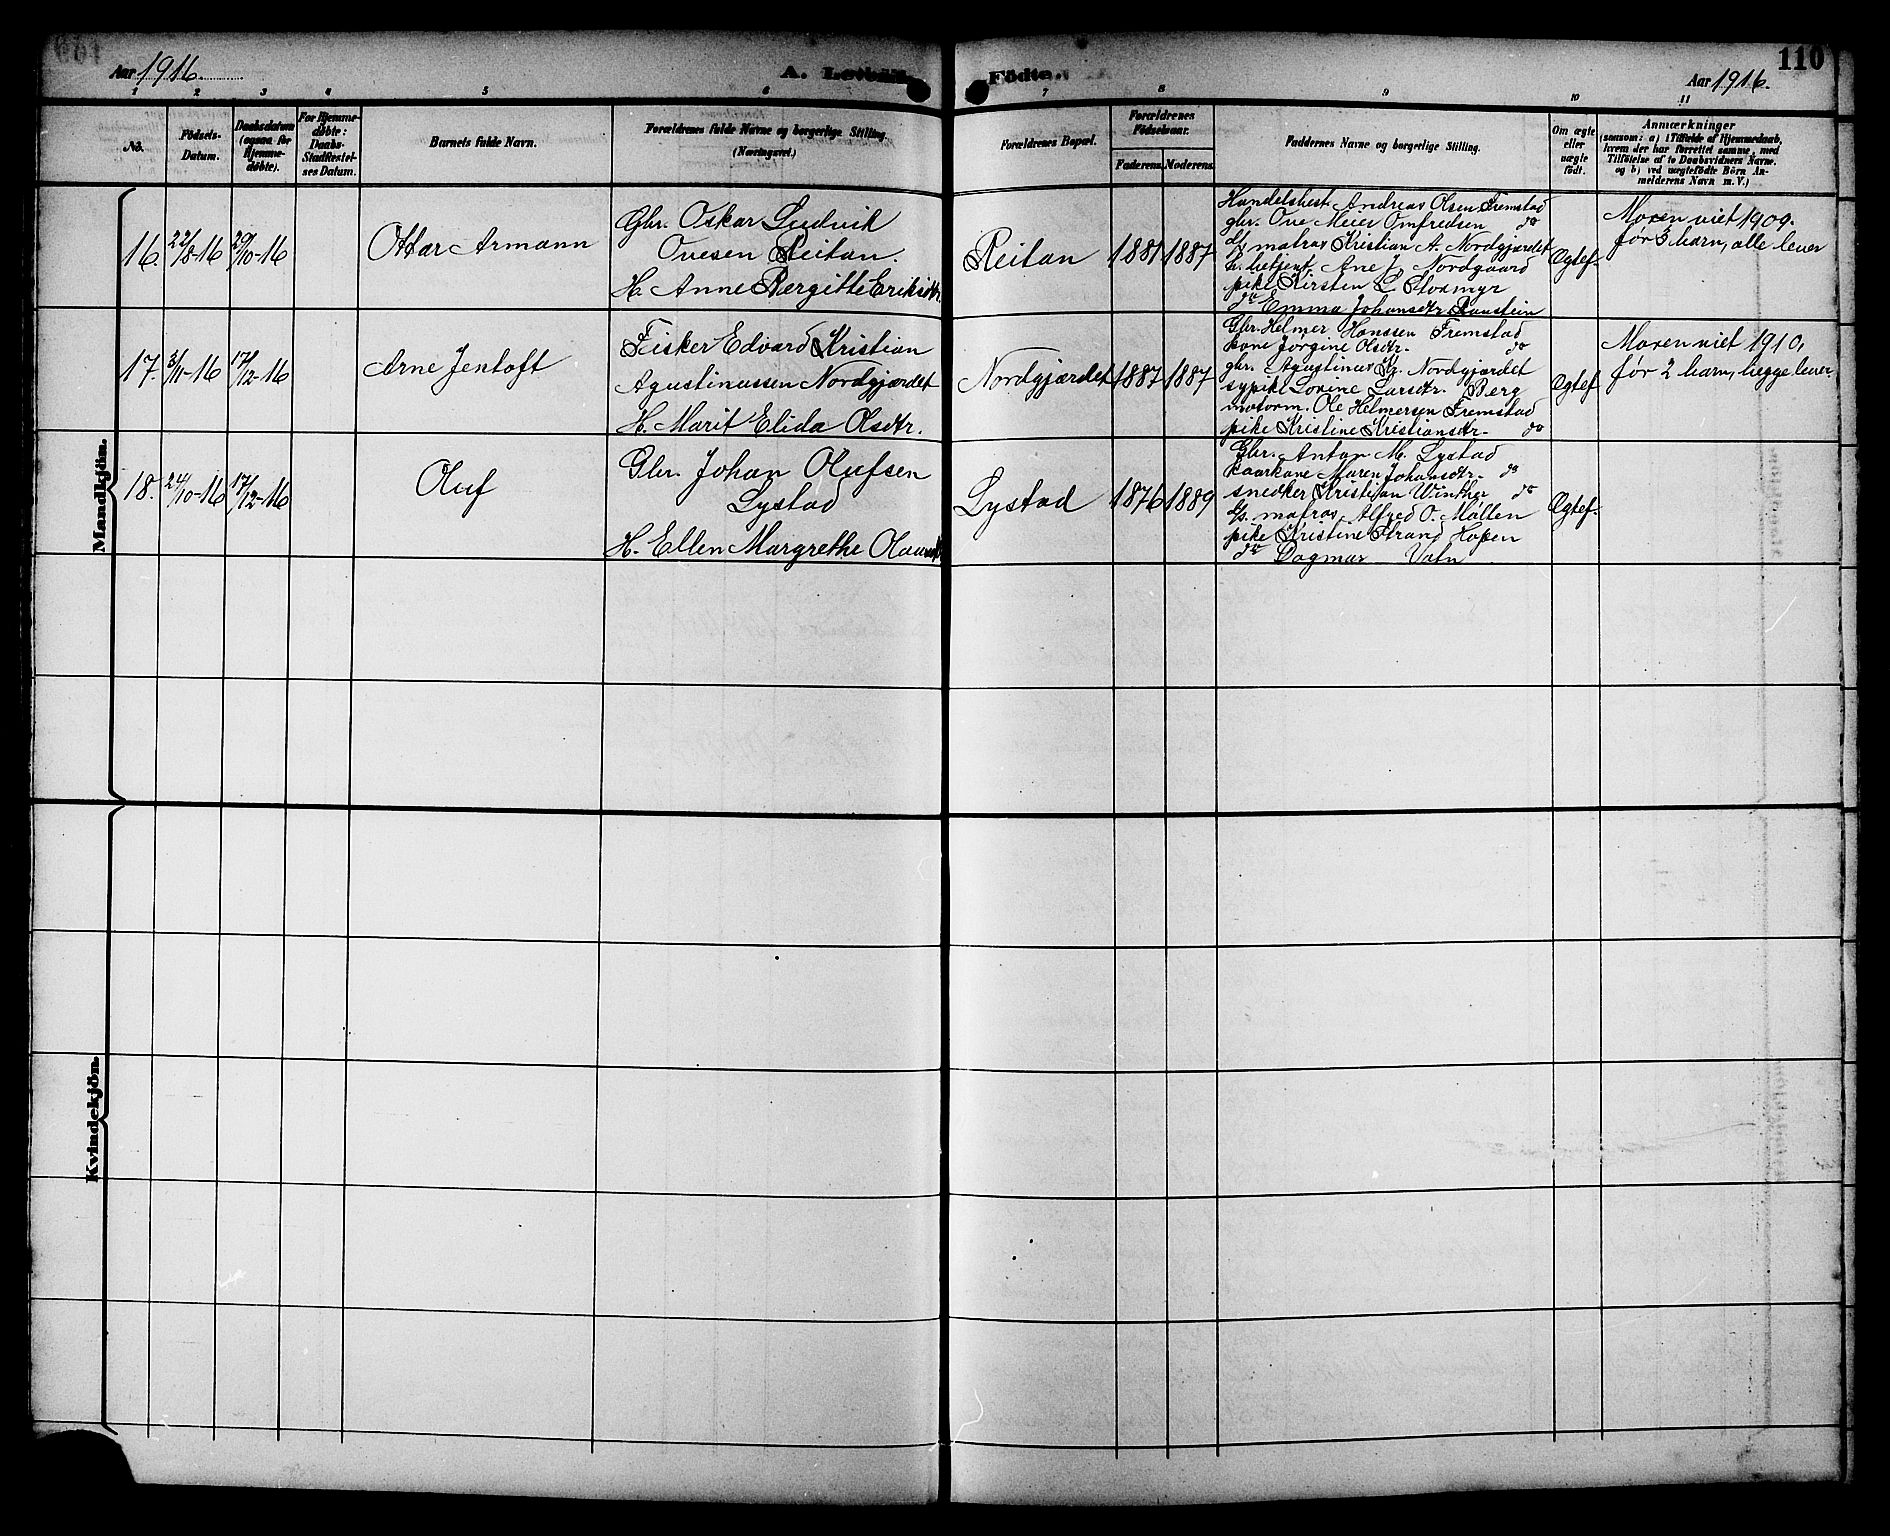 Aar 1916.
A. Levende
Födte.
110
Aar 1916.
1 2 3 4 5 6 7 8 9 10 11
No.
Födsels-Datum.
Daabsdatum (ogsaa for Hjemmedøbte).
For Hjemmedøbte: Daabs-Stadfæstelses Datum.
Barnets fulde Navn.
Forældrenes fulde Navne og borgerlige Stilling. (Næringsvei.)
Forældrenes Bopæl.
Forældrenes Födselsaar.
Faderens. Moderens.
Faddernes Navne og borgerlige Stilling.
Om ægte eller uægte født.
Anmærkninger
(saasom: a) i Tilfælde af Hjemmedaab,
hvem der har forrettet samme, med
Tilföielse af to Daabsvidners Navne.
og b) ved uægtefödte Börn An-
melderens Navn m. V.)
Mandkjön.
16. 22/8-16 29/10-16 Ottar Armann
Gbr. Oskar Ludvik
Ovesen Reitan.
H. Anne Bergitte Eriksdtr.
Reitan 1881 1887
Handelsbest. Andreas Olsen Fremstad
gbr. Ove Meier Omfredsen do
d/s matros Kristian A. Nordgjærdet
h. betjent Ane J. Nordgaard
pike Kirsten L. Stormyr
do Emma Johansdtr. Raustein
Ægtef.
Moren viet 1909.
før 3 barn, alle lever
17. 3/11-16 17/12-16 Arne Jentoft
Fisker Edvard Kristian
Agustinussen Nordgjærdet
H. Marit Elida Olsdtr.
Nordgjærdet 1887 1887
Gbr. Helmer Hanssen Fremstad
kone Jørgine Olsdtr. do
gbr. Agustinus K. Nordgjærdet
sypike Lovine Larsdtr. Berg
motorm. Ole Helmersen Fremstad
pike Kristine Kristiansdtr. do
Ægtef.
Moren viet 1910,
før 2 barn, begge lever
18. 24/10-16 17/12-16 Oluf
Gbr. Johan Olufsen
Lystad
H. Ellen Margrethe
Lystad 1876 1889
Gbr. Anton M. Lystad
kaarkone Maren Johansdtr. do
snedker Kristian Winther do
d/s. matros Alfred O. Møllen
pike Kristine Strand Hopen
do Dagmar Vatn
Ægtef.
Kvindekjön.